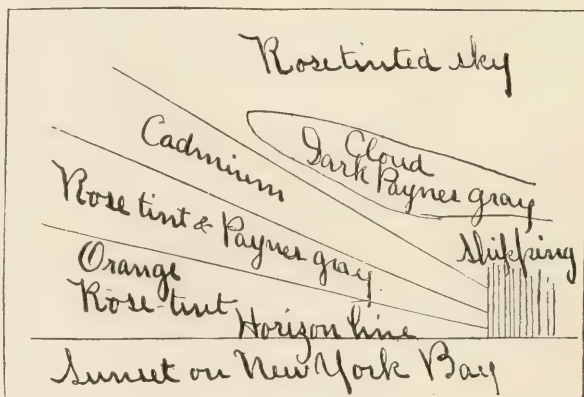 Rose tinted sky
Cloud
Dark Paynes gray
Cadmium
Rose tint & Paynes gray
Shipping
Orange
Rose-tint
Horizon line
Sunset on New York Bay